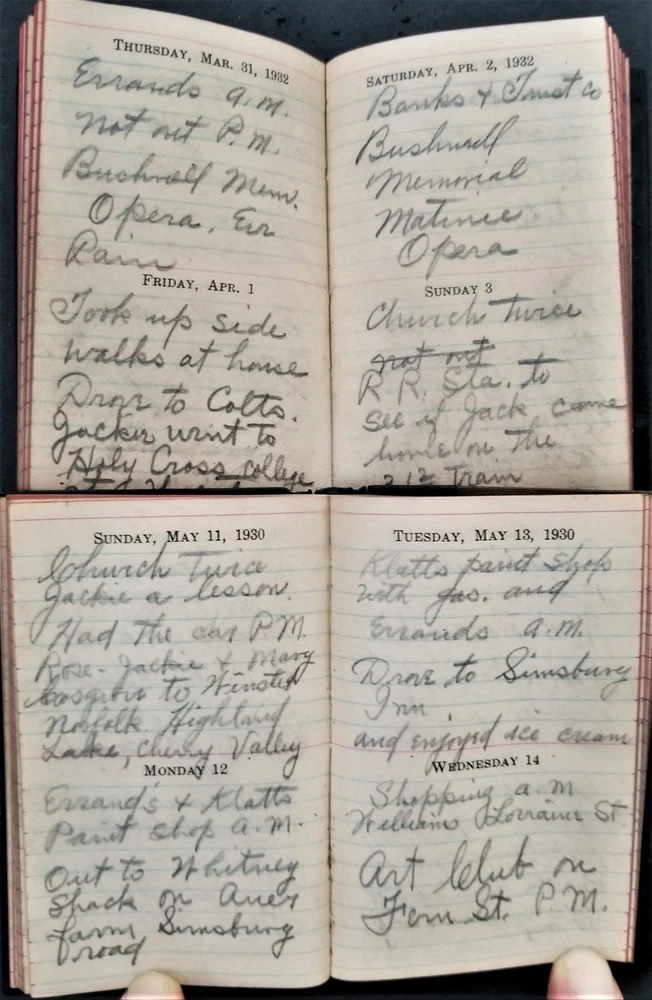 THURSDAY, MAR. 31, 1932
Errands a.m.
Not out P.M.
Bushnell Mem.
Opera. Eve
Rain
FRIDAY, APR. 1
Took up side
walks at house
Drove to Colts.
Jackie went to
Holy Cross college
SATURDAY, APR. 2, 1932
Banks & Trust Co
Bushnell
Memorial
Matinie
Opera
SUNDAY 3
Church twice
not out
R.R. Sta. to
see if Jack came
home on the
2 12 Train
SUNDAY, MAY 11, 1930
Church Twice
Jackie a lesson.
Had the car P.M.
Rose. Jackie & Mary
Cosgrove to Winsted
Norfolk. Highland
Lake, Cherry Valley
MONDAY 12
Errand's & Klatts
Paint shop a.m.
Out to Whitney
Shack on
farm, Simsburg
road
TUESDAY, MAY 13, 1930
Klatts paint shop
with gas. and
Errands a.m.
Drove to Simsburg
Inn
and enjoyed ice cream
WEDNESDAY 14
Shopping a.m
Williams Lorraine St.
Art Club on
Fern St. P.M.